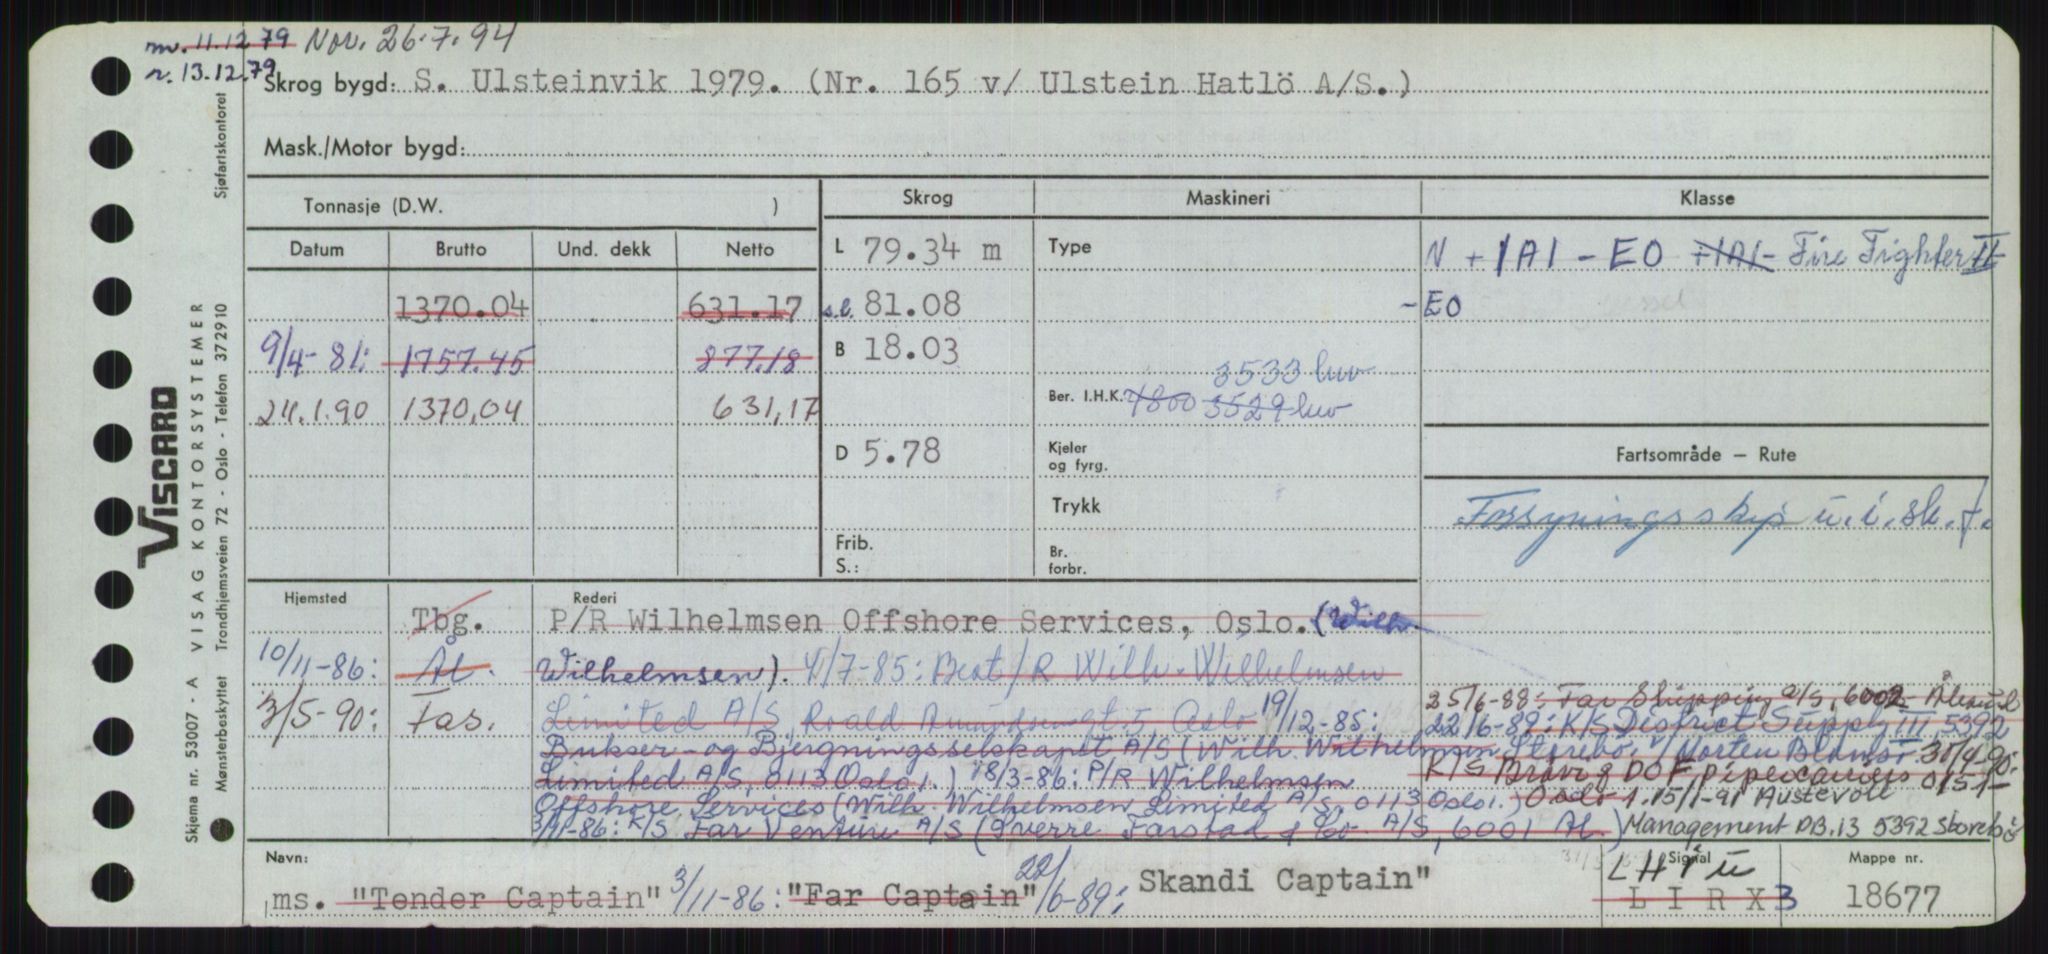 m. 11.12 79 Nov. 26.7.94
r. 13.12.79
Skrog bygd: S. Ulsteinvik 1979. (Nr. 165 v/ Ulstein Hatlö A/S.)
Mask./Motor bygd:
Tonnasje (D.W. )
Skrog
Maskineri
Klasse
Datum Brutto Und. dekk Netto
L 79.34 m
Type
N + 1A1 - EO +1A1- Fire Fighter II
1370.04 631.17
s.l. 81.08
-EO
vessel
9/4-81: 1757.45 877.18
B 18.03
3533 hw
24.1.90 1370,04 631,17
Ber. I.H.K. 4800 3529 hw
D 5.78
Kjeler og fyrg.
Fartsområde – Rute
Trykk
Forsyningsskip u.i.sk.f.
Frib.
S.:
Br. forbr.
Hjemsted
Rederi
Tbg. P/R Wilhelmsen Offshore Services, Oslo. (Wilh.
10/11-86: Ål. Wilhelmsen). 4/7-85: Best/R Wilh. Wilhelmsen
3/5-90: Fas. Limited A/S, Roald Amundsensgt. 5 Oslo 19/12-85:
Bukser- og Bjergningsselskapet A/S (Wilh. Wilhelmsen
Limited A/S, 0113 Oslo 1.) 18/3-86: P/R Wilhelmsen
Offshore Services (Wilh. Wilhelmsen Limited A/S, 0113 Oslo 1.)
3/11-86: K/S Far Venture A/S (Sverre Farstad & Co. A/S, 6001 Ål.)
25/6-88: Far Shipping a/s, 6002 Ålesund
22/6-89: K/S District Supply III, 5392
Storebø. v/ Morten 31/4-90:
K/S DOF pipecarriers 0151
Oslo 1. 15/1-91 Austevoll
Management PB.13 5392 Storebø
Navn:
ms. "Tender Captain" 3/11-86: "Far Captain" 22/6-89: Skandi Captain"
Signal
LHYU
LIRX3
Mappe nr.
18677
VISCARD
Skjema nr. 53007 - A VISAG KONTORSYSTEMER
Mønsterbeskyttet Trondhjemsveien 72 - Oslo - Telefon 372910
Sjøfartskontoret